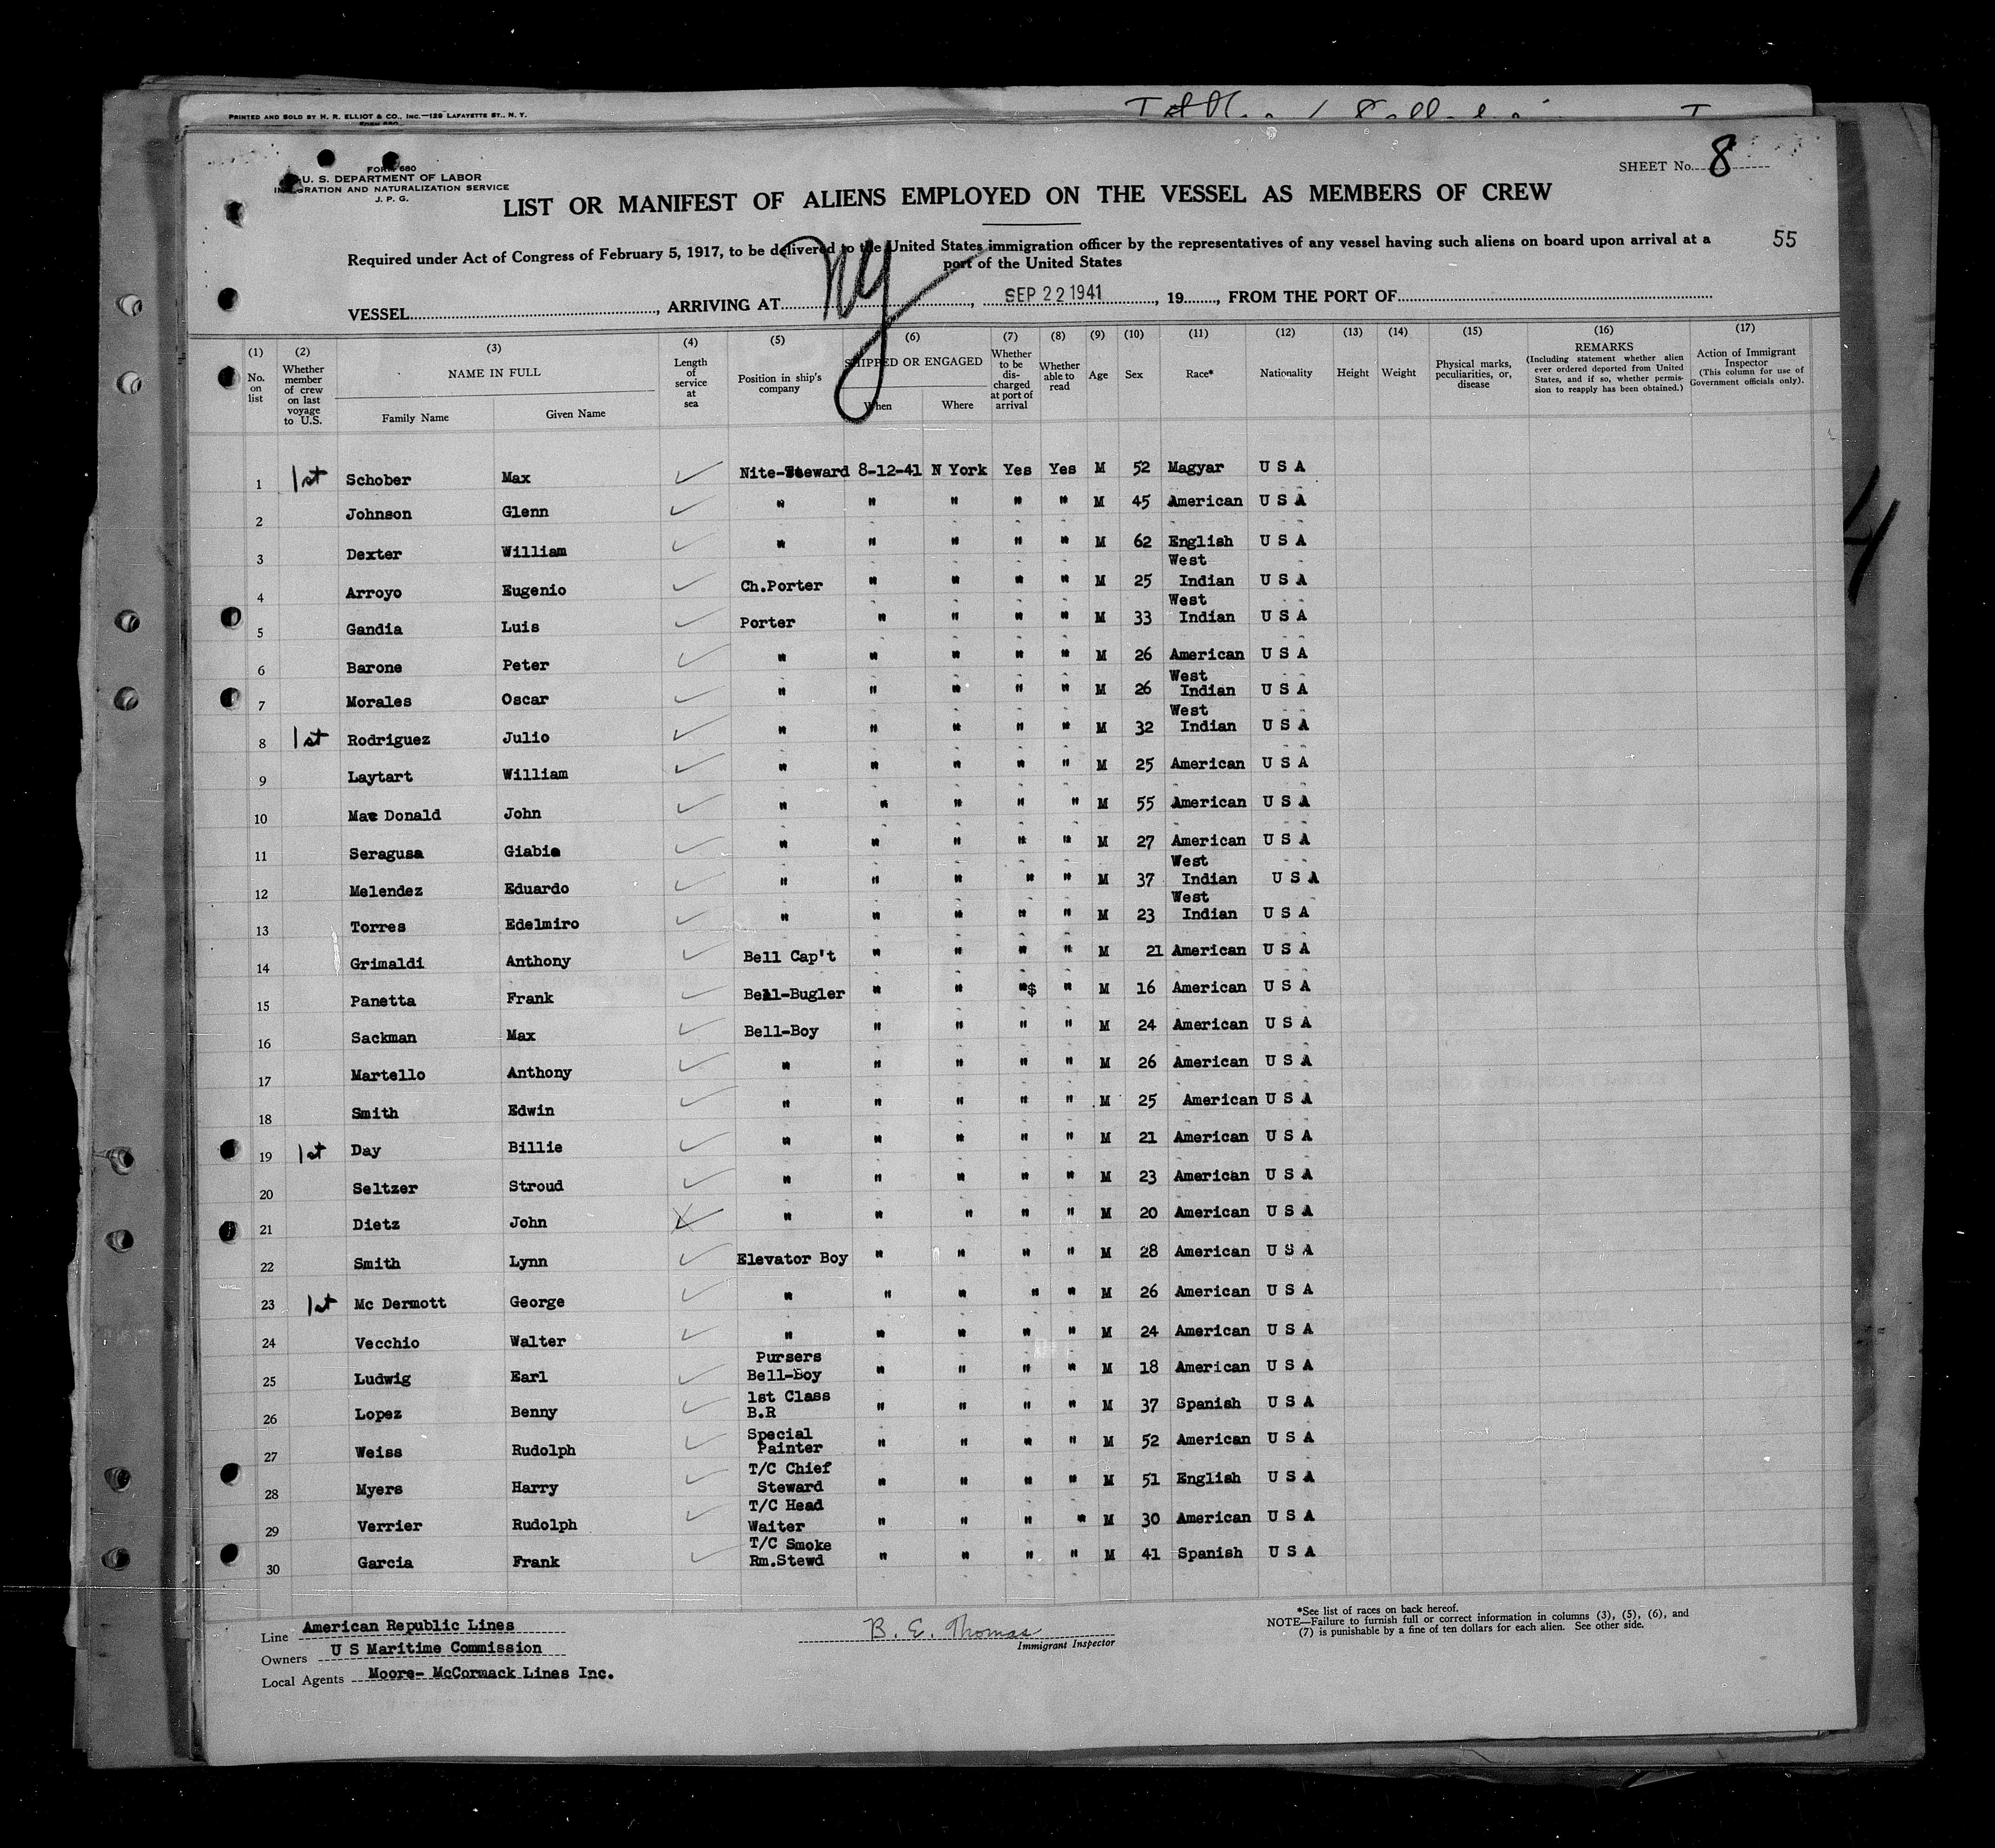 PRINTED AND SOLD BY H. R. ELLIOT & CO., INC.—129 LAFAYETTE ST., N. Y.
FORM 680
U. S. DEPARTMENT OF LABOR
IMMIGRATION AND NATURALIZATION SERVICE
J. P. G.
SHEET No. 8
LIST OR MANIFEST OF ALIENS EMPLOYED ON THE VESSEL AS MEMBERS OF CREW
55
Required under Act of Congress of February 5, 1917, to be delivered to the United States immigration officer by the representatives of any vessel having such aliens on board upon arrival at a
port of the United States
VESSEL, ARRIVING AT NY, SEP 22 1941, 19, FROM THE PORT OF
(1) No. on list (2) Whether member of crew on last voyage to U.S. (3) NAME IN FULL Family Name Given Name (4) Length of service at sea (5) Position in ship's company (6) SHIPPED OR ENGAGED When Where (7) Whether to be discharged at port of arrival (8) Whether able to read (9) Age (10) Sex (11) Race* (12) Nationality (13) Height (14) Weight (15) Physical marks, peculiarities, or, disease (16) REMARKS (Including statement whether alien ever ordered deported from United States, and if so, whether permission to reapply has been obtained.) (17) Action of Immigrant Inspector (This column for use of Government officials only).
1 1st Schober Max ✓ Nite-Steward 8-12-41 N York Yes Yes M 52 Magyar U S A
2 Johnson Glenn ✓ " " " " " M 45 American U S A
3 Dexter William ✓ " " " " " M 62 English U S A
4 Arroyo Eugenio ✓ Ch.Porter " " " " M 25 West Indian U S A
5 Gandia Luis ✓ Porter " " " " M 33 West Indian U S A
6 Barone Peter ✓ " " " " " M 26 American U S A
7 Morales Oscar ✓ " " " " " M 26 West Indian U S A
8 1st Rodriguez Julio ✓ " " " " " M 32 West Indian U S A
9 Laytart William ✓ " " " " " M 25 American U S A
10 Mac Donald John ✓ " " " " " M 55 American U S A
11 Seragusa Giabie ✓ " " " " " M 27 American U S A
12 Melendez Eduardo ✓ " " " " " M 37 West Indian U S A
13 Torres Edelmiro ✓ " " " " " M 23 West Indian U S A
14 Grimaldi Anthony ✓ Bell Cap't " " " " M 21 American U S A
15 Panetta Frank ✓ Bell-Bugler " " "$ " M 16 American U S A
16 Sackman Max ✓ Bell-Boy " " " " M 24 American U S A
17 Martello Anthony ✓ " " " " " M 26 American U S A
18 Smith Edwin ✓ " " " " " M 25 American U S A
19 1st Day Billie ✓ " " " " " M 21 American U S A
20 Seltzer Stroud ✓ " " " " " M 23 American U S A
21 Dietz John ✓ " " " " " M 20 American U S A
22 Smith Lynn ✓ Elevator Boy " " " " M 28 American U S A
23 1st Mc Dermott George ✓ " " " " " M 26 American U S A
24 Vecchio Walter ✓ " " " " " M 24 American U S A
25 Ludwig Earl ✓ Pursers Bell-Boy " " " " M 18 American U S A
26 Lopez Benny ✓ 1st Class B.R " " " " M 37 Spanish U S A
27 Weiss Rudolph ✓ Special Painter " " " " M 52 American U S A
28 Myers Harry ✓ T/C Chief Steward " " " " M 51 English U S A
29 Verrier Rudolph ✓ T/C Head Waiter " " " " M 30 American U S A
30 Garcia Frank ✓ T/C Smoke Rm.Stewd " " " " M 41 Spanish U S A
Line American Republic Lines
Owners U S Maritime Commission
Local Agents Moore- McCormack Lines Inc.
B. E. Thomas
Immigrant Inspector
*See list of races on back hereof.
NOTE—Failure to furnish full or correct information in columns (3), (5), (6), and
(7) is punishable by a fine of ten dollars for each alien. See other side.